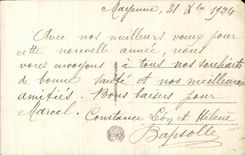 Mayenne, 31 Xbre 1924
Avec nos meilleurs vœux pour
cette nouvelle année, nous
vous envoyons à tous nos souhaits
de bonne santé et nos meilleures
amitiés. Bons baisers pour
Marcel. Constance Léon et Hélène